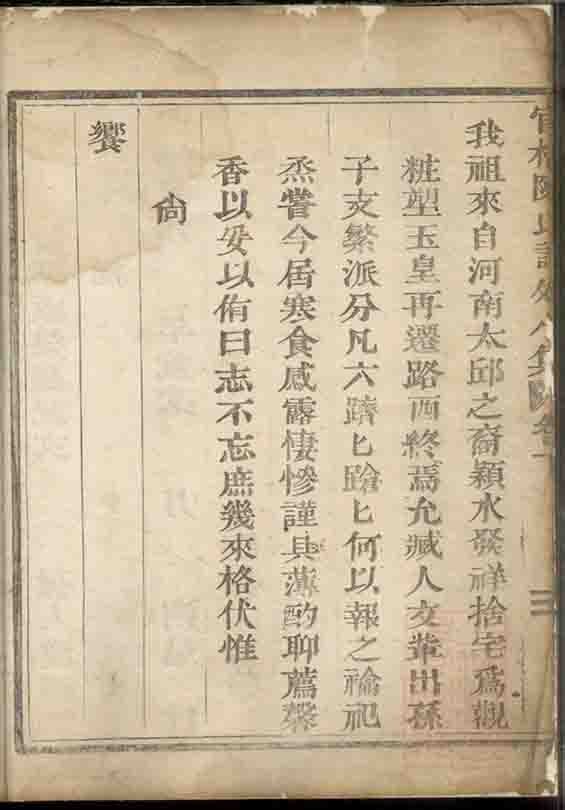 陳氏譜外八集 卷一
三
我祖來自河南太邱之裔穎水發祥捨宅爲觀
粧塑玉皇再遷路西終焉允臧人文輩出孫
子支繁派分凡六蹟匕蹌匕何以報之禴祀
烝嘗今居寒食感露悽慘謹具薄酌聊薦馨
香以妥以侑曰志不忘庶幾來格伏惟
尙
饗